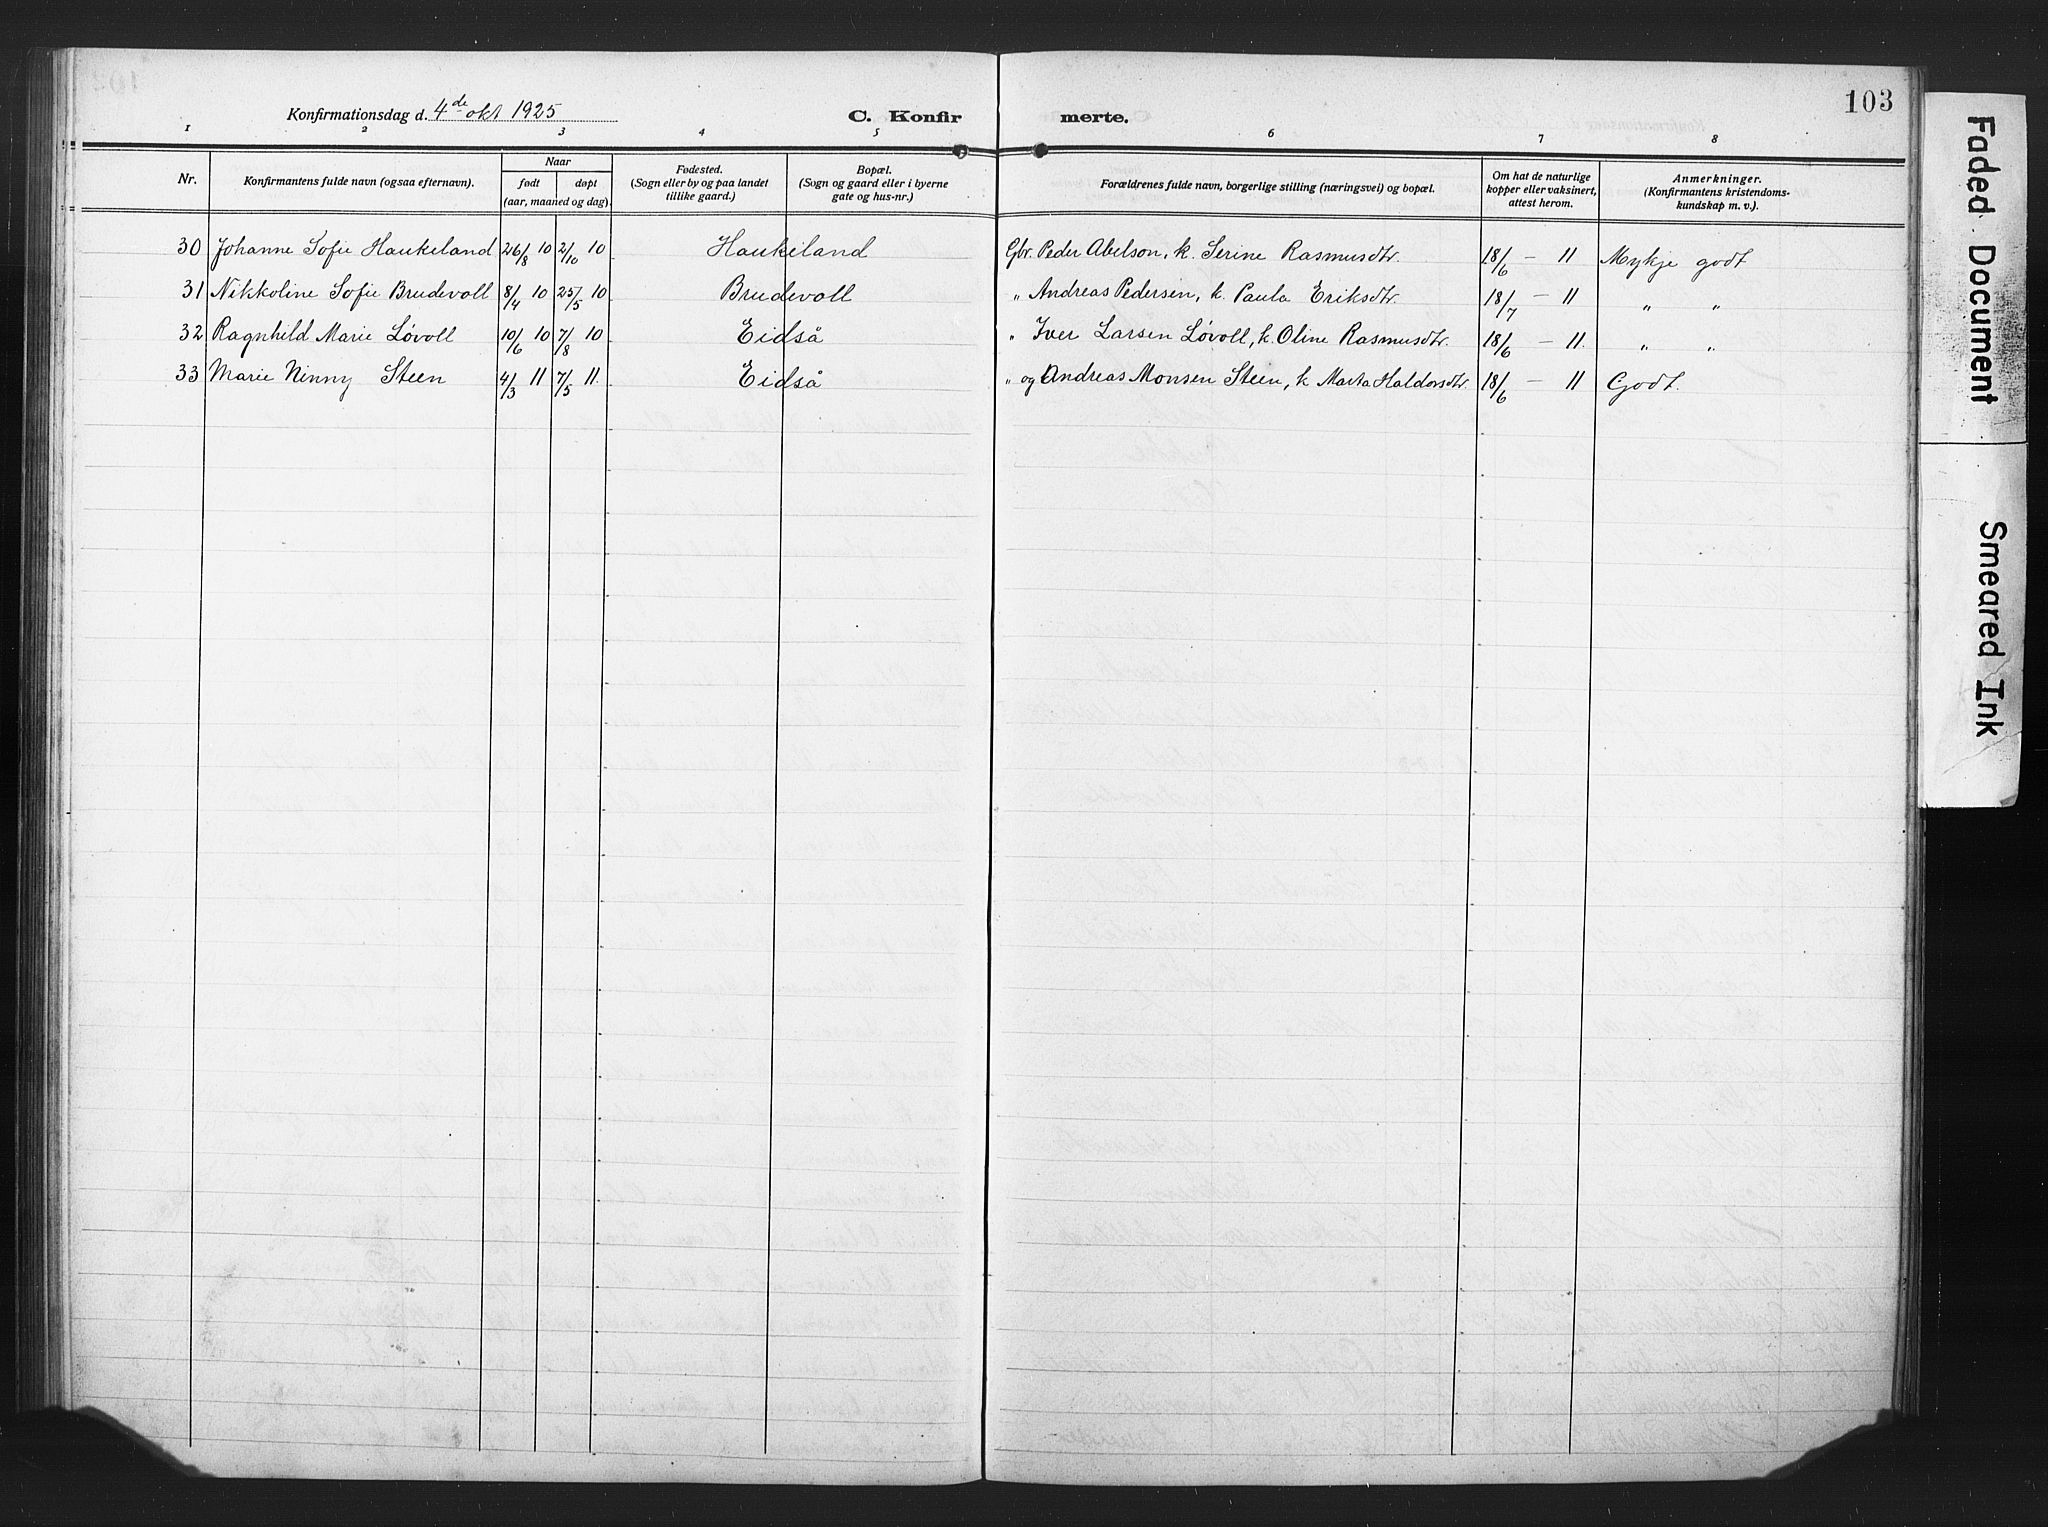 103
Konfirmationsdag d. 4de okt 1925 C. Konfir merte.
1 2 3 4 5 6 7 8
Nr. Konfirmantens fulde navn (ogsaa efternavn). Naar født døpt (aar, maaned og dag). Fødested. (Sogn eller by og paa landet tillike gaard.) Bopæl. (Sogn og gaard eller i byerne gate og hus-nr.) Forældrenes fulde navn, borgerlige stilling (næringsvei) og bopæl. Om hat de naturlige kopper eller vaksinert, attest herom. Anmerkninger. (Konfirmantens kristendoms-kundskap m. v.)
30 Johanne Sofie Haukeland 26/8 10 2/10 10 Haukeland Gbr. Peder Abelson, k. Serine Rasmusdtr. 18/6 – 11 Mykje godt
31 Nikkoline Sofie Brudevoll 8/4 10 25/5 10 Brudevoll " Andreas Pedersen, k. Paula Eriksdtr. 18/7 – 11 " "
32 Ragnhild Marie Løvoll 10/6 10 7/8 10 Eidså " Iver Larsen Løvoll, k. Oline Rasmusdtr. 18/6 – 11. " "
33 Marie Ninny Steen 4/3 11 7/5 11. Eidså " og Andreas Monsen Steen, k Marta Haldorsdtr. 18/6 – 11 Godt.
Faded Document
Smeared Ink